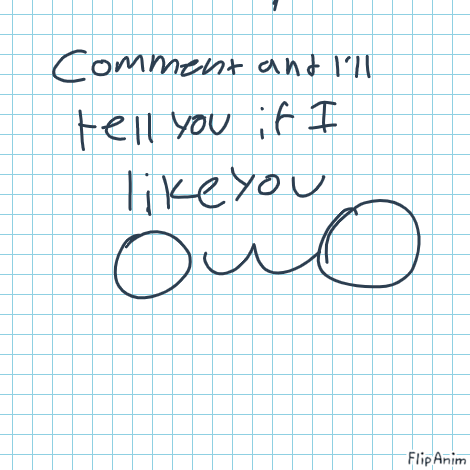 Comment and I'll
tell you if I
like you
OwO
FlipAnim